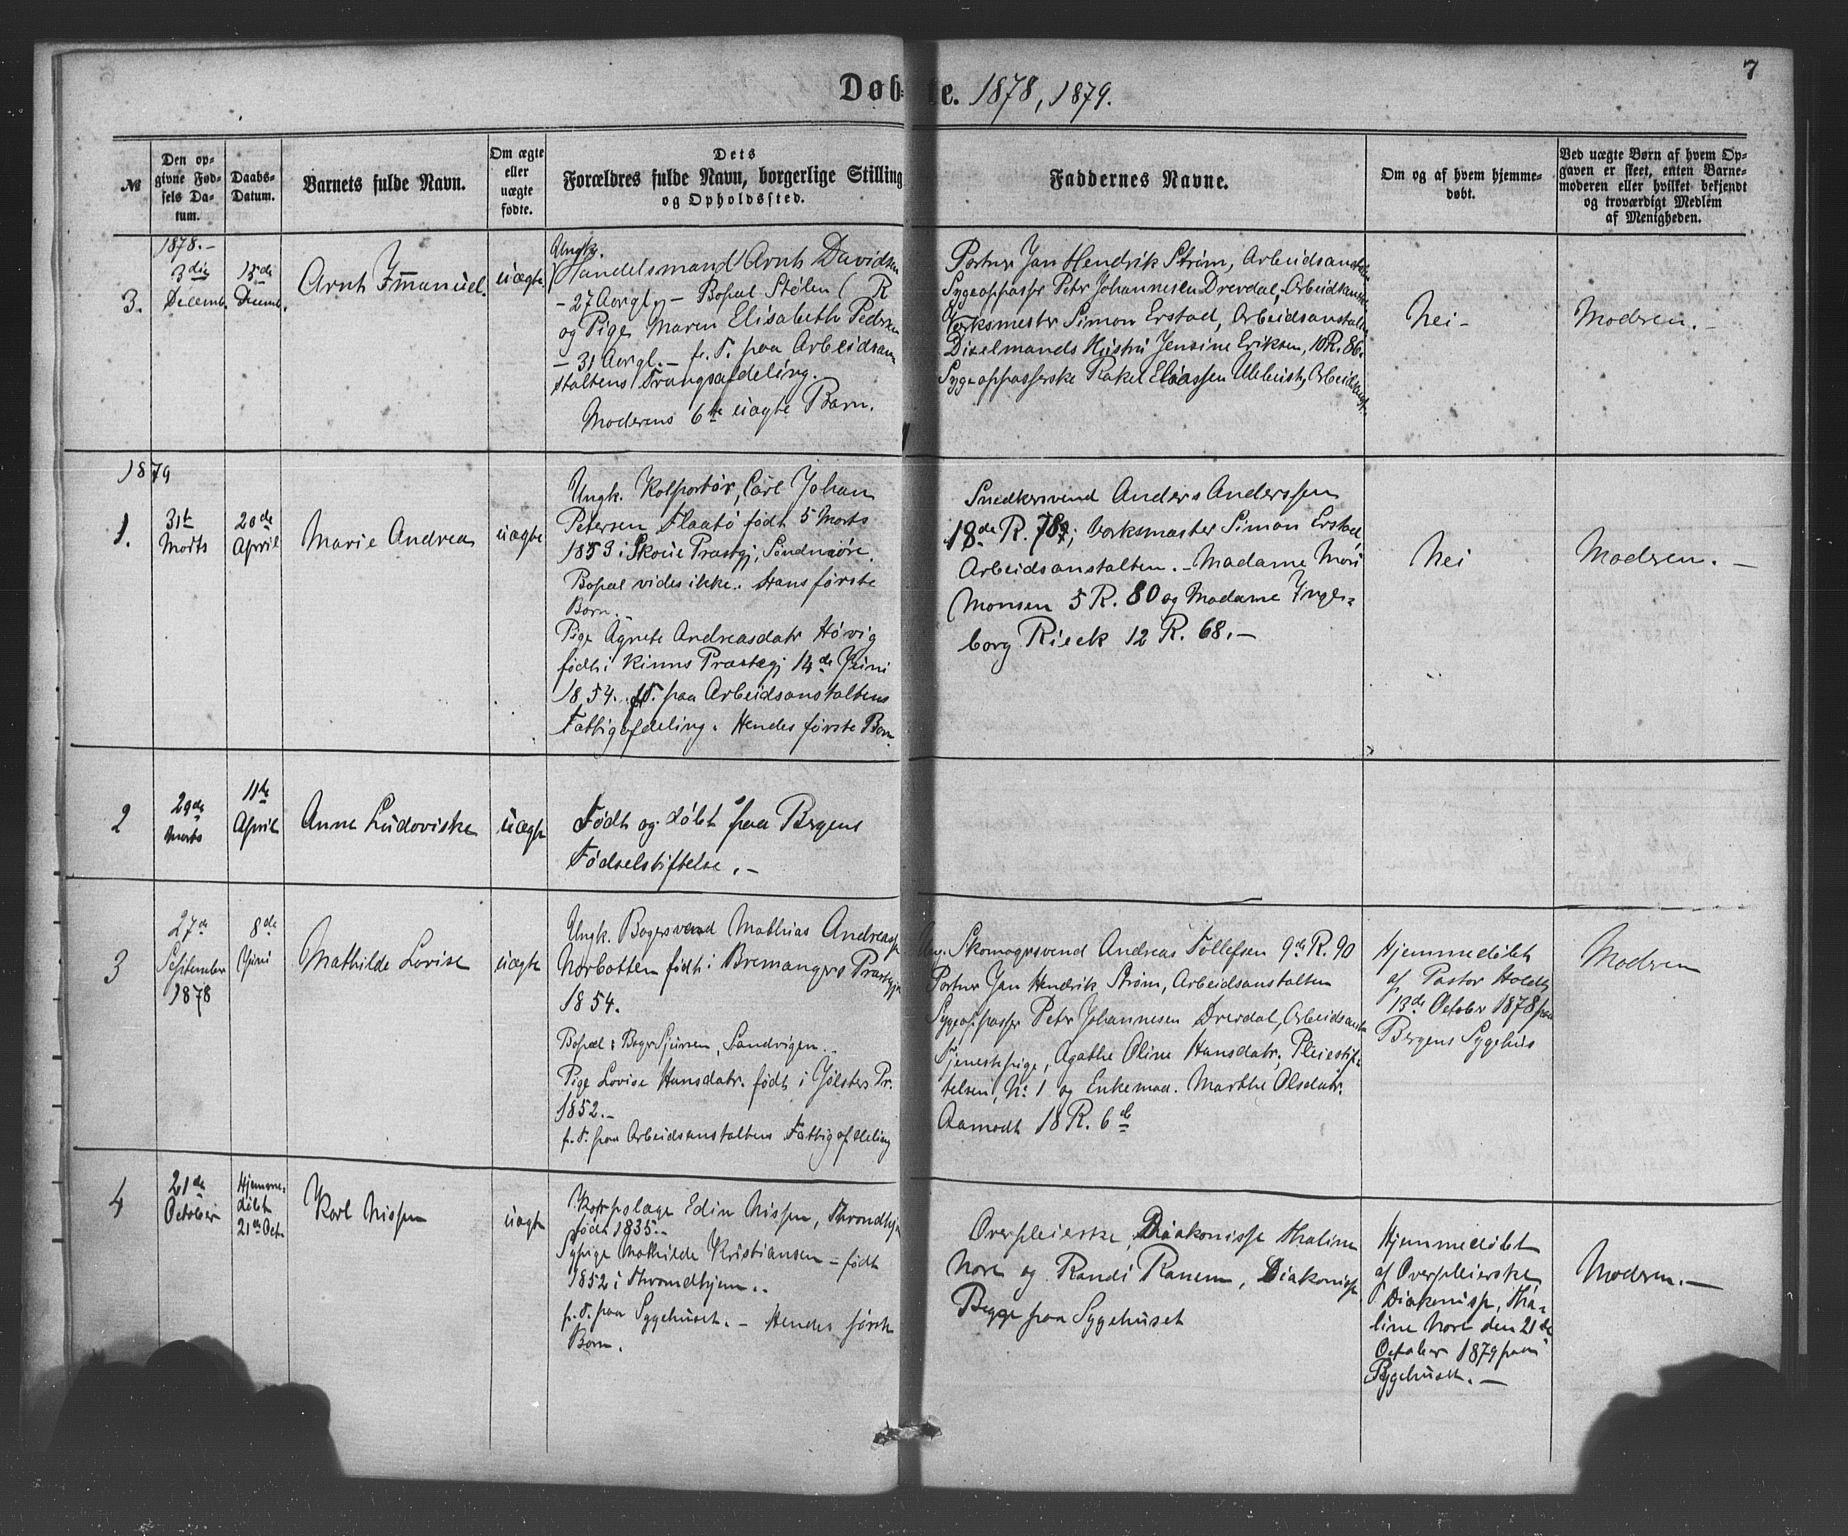 7
Døbte. 1878, 1879.
№
Den op-
givne Fød-
sels Da-
tum.
Daabs-
Datum.
Barnets fulde Navn.
Om ægte
eller
uægte
fødte.
Dets
Forældres fulde Navn, borgerlige Stilling
og Opholdssted.
Faddernes Navne.
Om og af hvem hjemme-
døbt.
Ved uægte Børn af hvem Op-
gaven er skeet, enten Barne-
moderen eller hvilket bekjendt
og troværdigt Medlem
af Menigheden.
1878.-
3.
3die
Decemb.
15de
Decemb.
Arnt Immanuel.
uægte
Ungk.
Handelsmand Arnt Davidsen
- 27 Aargl. - Bopæl Stølen (R
og Pige Maren Elisabeth Pedersen
- 31 Aargl. - f. T. paa Arbeidsan
staltens Tvangsafdeling.
Moderens 6te uægte Barn.
Portner Jan Hendrik Strøm, Arbeidsanstalten
Sygeopasser Peter Johannesen Drevdal, Arbeidsanst.
Værksmester Simon Erstad, Arbeidsanstalten
Hustru Jensine Eriksen, 10 R. 86.
Sygeopasserske Rakel Eliassen Arbeidsanst.
Nei -
Modren. -
1879
1.
31te
Marts
20de
April
Marie Andrea
uægte
Ungk. Kolportør, Carl Johan
Petersen Flaatø født 5 Marts
1853 i Skoue Præstegj. Søndmøre.
Bopæl vides ikke. Hans første
Barn.
Pige Agnete Andreasdatr Høvig
født i Kinns Præstegj. 14de Juni
1854. f. T. paa Arbeidsanstaltens
Fattigafdeling. Hendes første Barn
Snedkersvend Anders Anderssen
18de R. 78, Værksmester Simon Erstad,
Arbeidsanstalten. - Madame Mari
Monsen 5 R. 80 og Madame Inge-
borg Rieck 12 R. 68. -
Nei
Modren. -
2
29de
Marts
11te
April
Anne Ludoviske
uægte
Født og døbt paa Bergens
Fødselstiftelse. -
3
27de
September
1878
8de
Juni
Mathilde Lovise
uægte
Ungk. Bagersvend Mathias Andreass.
Norbotten født i Bremangers Præstegj.
1854.
Bopæl: Bager Sjursen, Sandvigen.
Pige Lovise Hansdatr. født i Jølsters Pr.
1852. -
f. T. paa Arbeidsanstaltens Fattigafdeling
Skomagersvend Andreas Tollefsen 9de R. 90
Portner Jan Hendrik Strøm, Arbeidsanstalten
Sygeopasser Peter Johannesen Drevdal, Arbeidsanst
Tjenestepige, Agathe Oline Hansdatr, Pleiestif-
telsen, No. 1 og Enkemad. Marthe Olsdatr.
Aamodt 18 R. 6de
Hjemmedøbt
af Pastor Holdt
13de October 1878 paa
Bergens Sygehus
Modren
4
21de
October
Hjemme-
døbt
21de Oct.
Karl Nissen
uægte
Edin Nissen, Throndhjem
født 1835. -
Sypige Mathilde Kristiansen - født
1852 i Throndhjem. -
f. T. paa Sygehuset. - Hendes første
Barn.
Overpleierske, Diakonisse Thaline
Nore og Randi Ranem, Diakonisse
Begge paa Sygehuset
Hjemmedøbt
af Overpleierske,
Diakonisse, Tha-
line Nore den 21de
October 1879 paa
Sygehuset. -
Modren. -